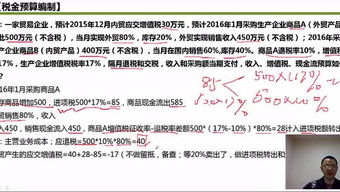 【税金预算编制】
：一家贸易企业，预计2015年12月内贸应交增值税30万元，预计2016年1月采购生产企业商品A（外贸产品
500万元（不含税），当月实现外贸80%，库存20%，外贸实现销售收入450万元（不含税）；2016年采
产企业商品B（内贸产品）400万元（不含税），当月在国内销售60%，库存40%。商品A退税率10%，增值税
17%，生产企业增值税税率17%，隔月退税和交税，收入和采购额当期支付，收入、增值税、现金流预算如
1月采购商品A
存商品增加500，进项税500*17%=85，商品现金流出585
销售80%，收入
入450，销售现金流入450，商品A增值税征收率-退税率差额500*（17%-10%）*80%=28计入进项税额转出
：主营业务成本；应退税=500*10%*80%=40
贸产生的应交增值税=40+28-85=-17（不做留抵，备查；等20%卖出了，做进项税转出和
85 500×17%
500×17%
500×